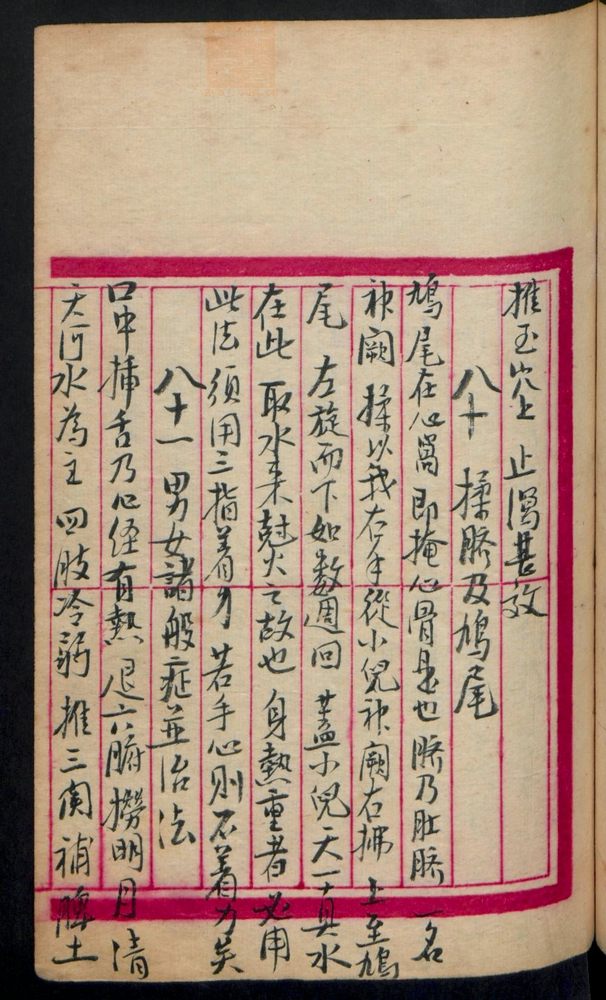 推玉穴上 止渴甚效
八十 揉臍及鳩尾
鳩尾在心窩 即掩心骨是也 臍乃肚臍 一名
神闕 揉以我右手從小兒神闕右拂 上至鳩
尾 左旋而下如數週回 蓋小兒天一真水
在此 取水來尅火之故也 身熱重者 必用
此法 須用三指著力 若手心則不着力矣
八十一 男女諸般症並治法
口中插舌乃心經有熱 退六腑撈明月清
天河水為主 四肢冷弱 推三関補脾土